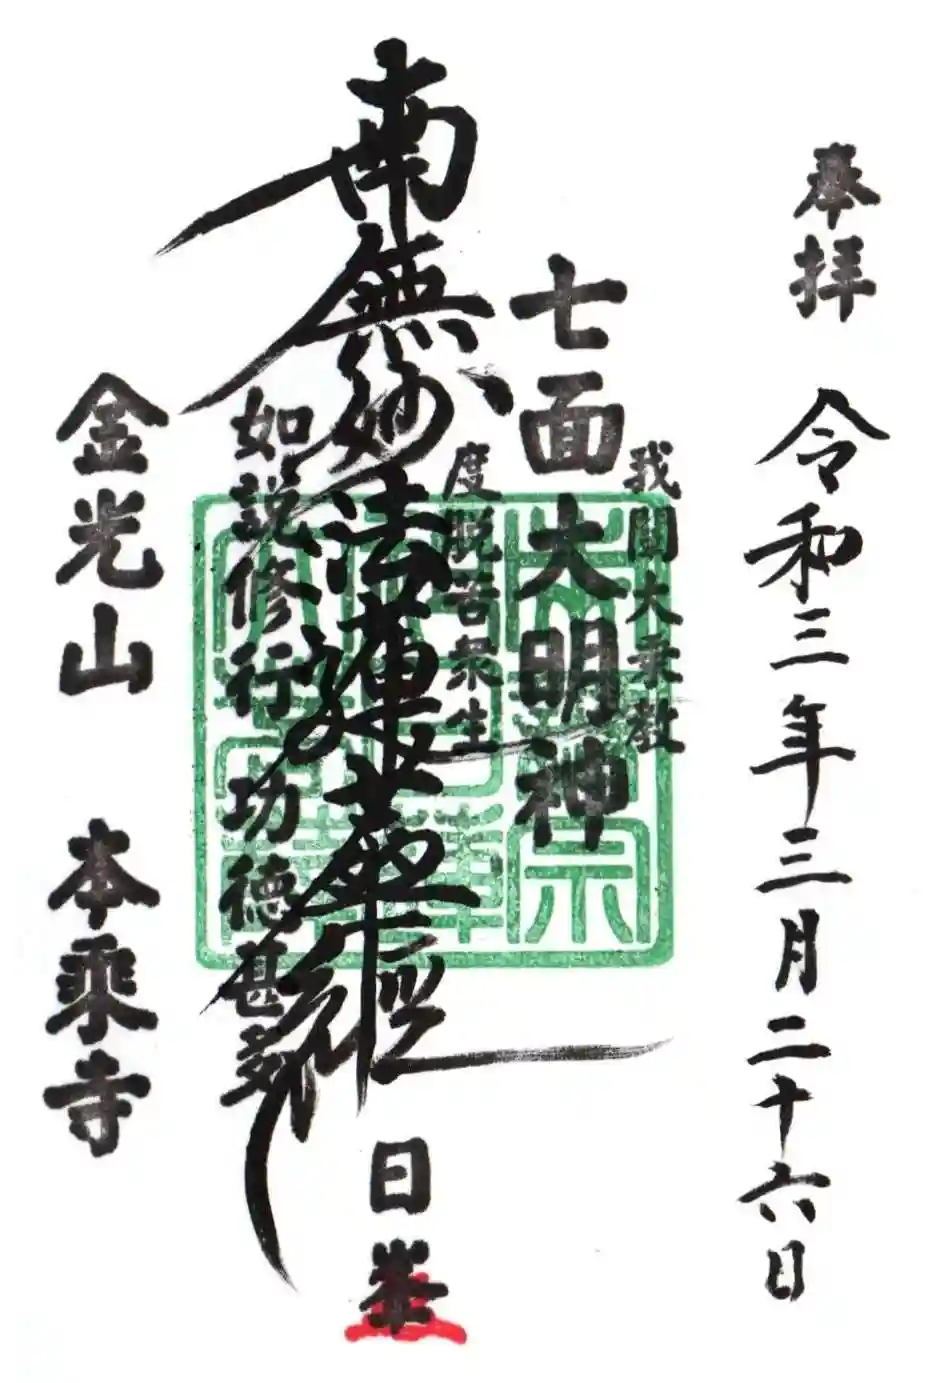 奉拝
令和三年三月二十六日
我闡大乗教
七面大明神
度脱苦衆生
南無妙法蓮華経
日峯
如説修行功徳甚多
金光山 本乗寺